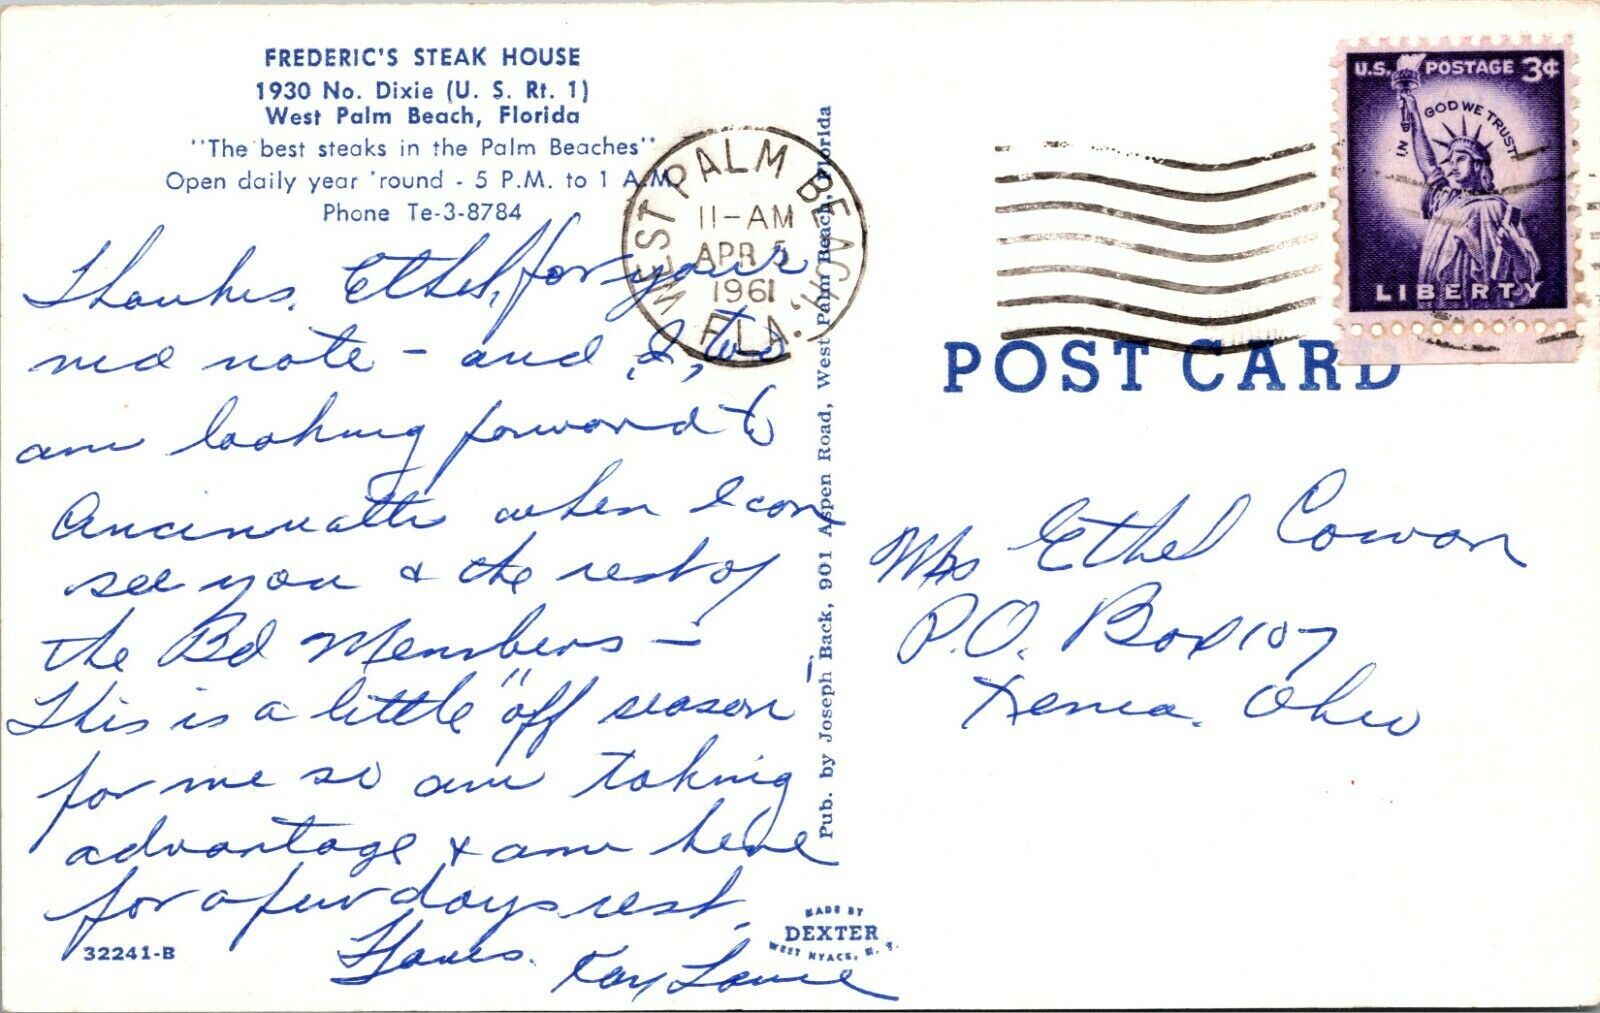 FREDERIC'S STEAK HOUSE
1930 No. Dixie (U. S. Rt. 1)
West Palm Beach, Florida
"The best steaks in the Palm Beaches"
Open daily year 'round - 5 P.M. to 1 A.M.
Phone Te-3-8784
Thanks, Ethel, for your
note - and I, too
am looking forward to
Cincinnatti when I can
see you & the rest of
the Bd Members -
This is a little "off season
for me so am taking
advantage & am here
for a few days rest.
Kay
32241-B
WEST PALM BEACH, FLA.
11-AM
APR 5
1961
Pub. by Joseph Back, 901 Aspen Road, West Palm Beach, Florida
MADE BY
DEXTER
WEST NYACK, N. Y.
U.S. POSTAGE 3¢
IN GOD WE TRUST
LIBERTY
POST CARD
Mrs Ethel Cowan
P.O. Box 107
Xenia, Ohio